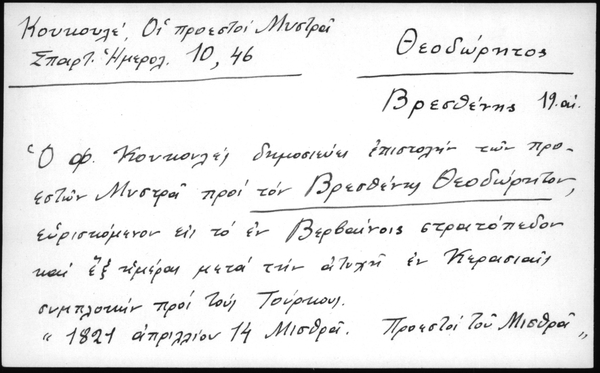 Κουκουλέ, Οἱ προεστοὶ Μυστρᾶ
Σπαρτ. Ἡμερολ. 10, 46
Θεοδώρητος
Βρεσθένης 19. αἰ.
Ὁ Φ. Κουκουλές δημοσιεύει ἐπιστολήν τῶν προ-
εστῶν Μυστρᾶ πρός τόν Βρεσθένης Θεοδώρητον,
εὑρισκόμενον εἰς τό ἐν Βερβαίνοις στρατόπεδον
καί ἕξ ἡμέρας μετά τήν ἀτυχῆ ἐν Κερασιαῖς
συμπλοκήν πρός τούς Τούρκους.
" 1821 ἀπριλλίου 14 Μισθρᾶ. Προεστοί τοῦ Μισθρᾶ "